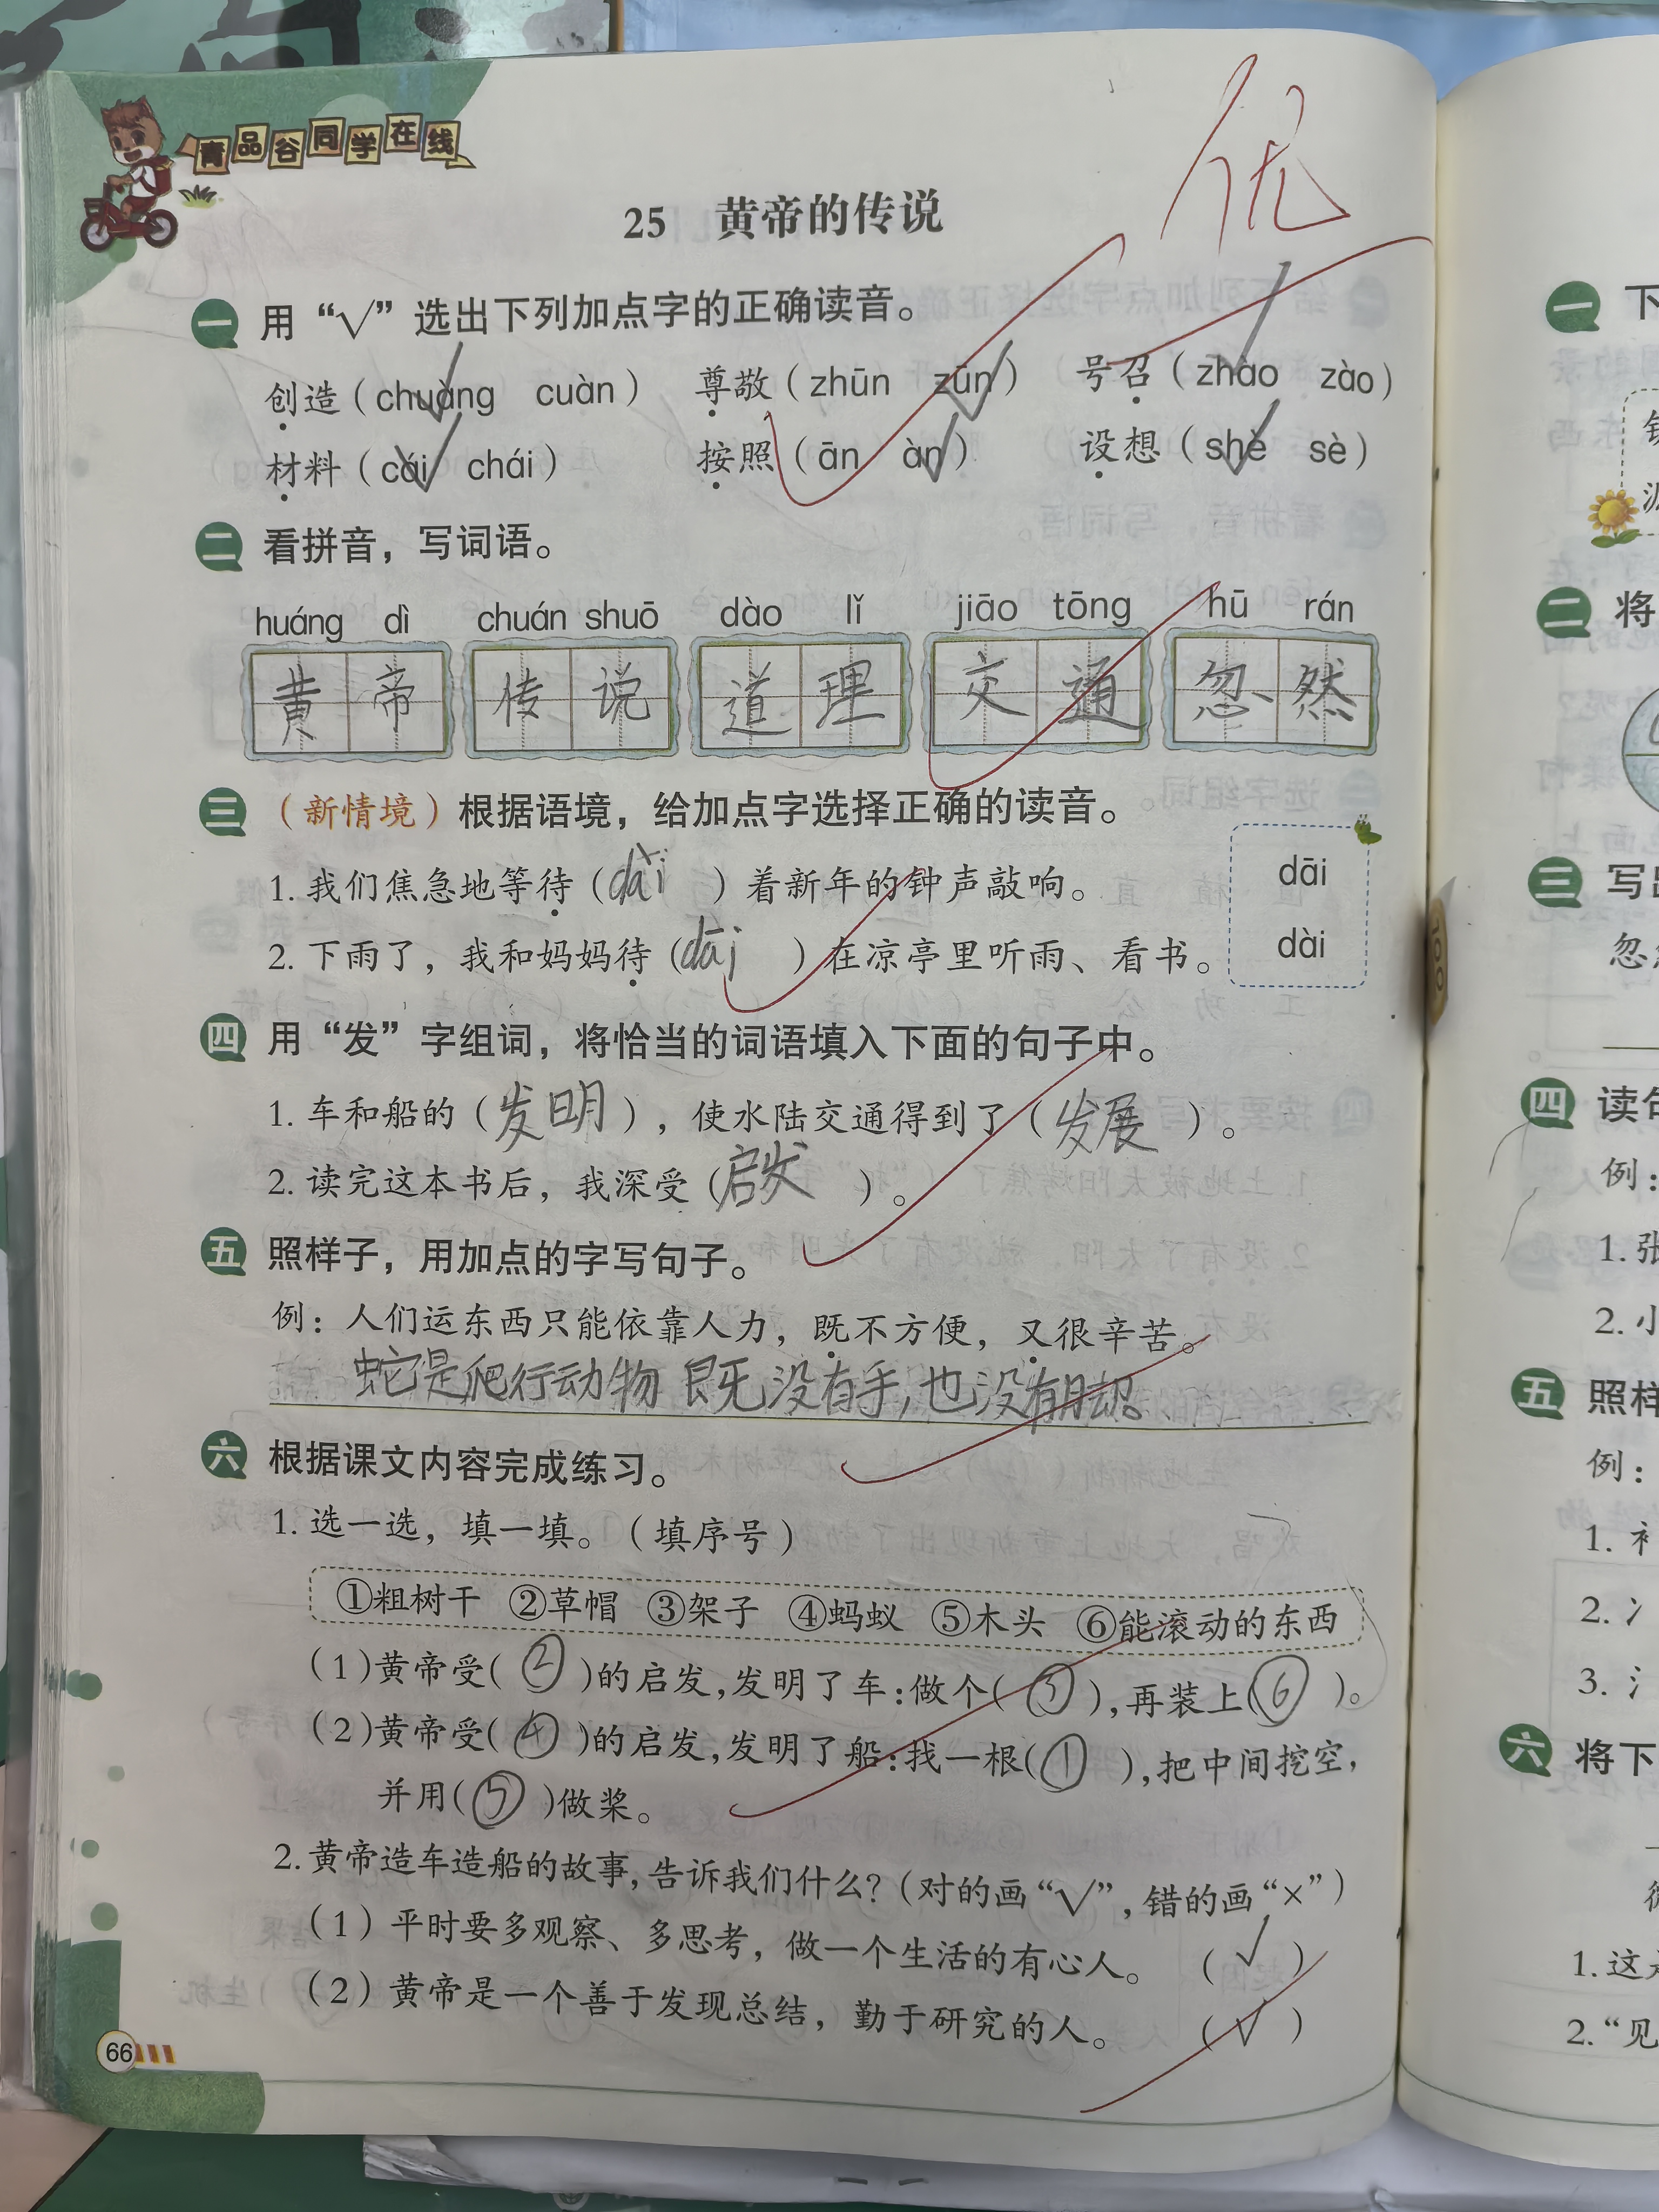 青品谷同学在线
优
25 黄帝的传说
一 用“√”选出下列加点字的正确读音。
创造（chuàng cuàn） 尊敬（zhūn zūn） 号召（zhào zào）
材料（cái chái） 按照（ān àn） 设想（shè sè）
二 看拼音，写词语。
huáng dì chuán shuō dào lǐ jiāo tōng hū rán
黄帝 传说 道理 交通 忽然
三 （新情境）根据语境，给加点字选择正确的读音。
1. 我们焦急地等待（dài）着新年的钟声敲响。
2. 下雨了，我和妈妈待（dāi）在凉亭里听雨、看书。
dāi
dài
四 用“发”字组词，将恰当的词语填入下面的句子中。
1. 车和船的（发明），使水陆交通得到了（发展）。
2. 读完这本书后，我深受（启发）。
五 照样子，用加点的字写句子。
例：人们运东西只能依靠人力，既不方便，又很辛苦。
蛇是爬行动物 既没有手，也没有脚。
六 根据课文内容完成练习。
1. 选一选，填一填。（填序号）
①粗树干 ②草帽 ③架子 ④蚂蚁 ⑤木头 ⑥能滚动的东西
（1）黄帝受(②)的启发，发明了车：做个(③)，再装上(⑥)。
（2）黄帝受(④)的启发，发明了船：找一根(①)，把中间挖空，
并用(⑤)做桨。
2. 黄帝造车造船的故事，告诉我们什么？（对的画“√”，错的画“×”）
（1）平时要多观察、多思考，做一个生活的有心人。（√）
（2）黄帝是一个善于发现总结，勤于研究的人。（√）
66
一 下
二 将
三 写出
忽然
四 读句
例：
1. 张
2. 小
五 照样
例：
1.
2.
3.
六 将下
1. 这
2. “见